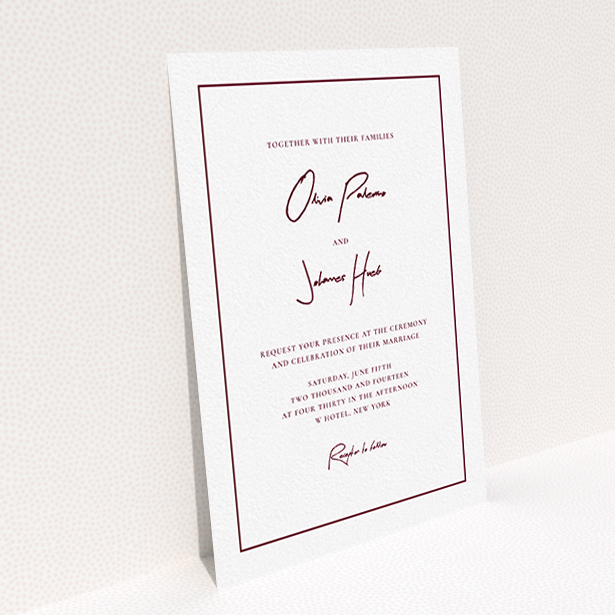 TOGETHER WITH THEIR FAMILIES
Olivia Palermo
AND
Johannes Hueb
REQUEST YOUR PRESENCE AT THE CEREMONY
AND CELEBRATION OF THEIR MARRIAGE
SATURDAY, JUNE FIFTH
TWO THOUSAND AND FOURTEEN
AT FOUR THIRTY IN THE AFTERNOON
W HOTEL, NEW YORK
to follow